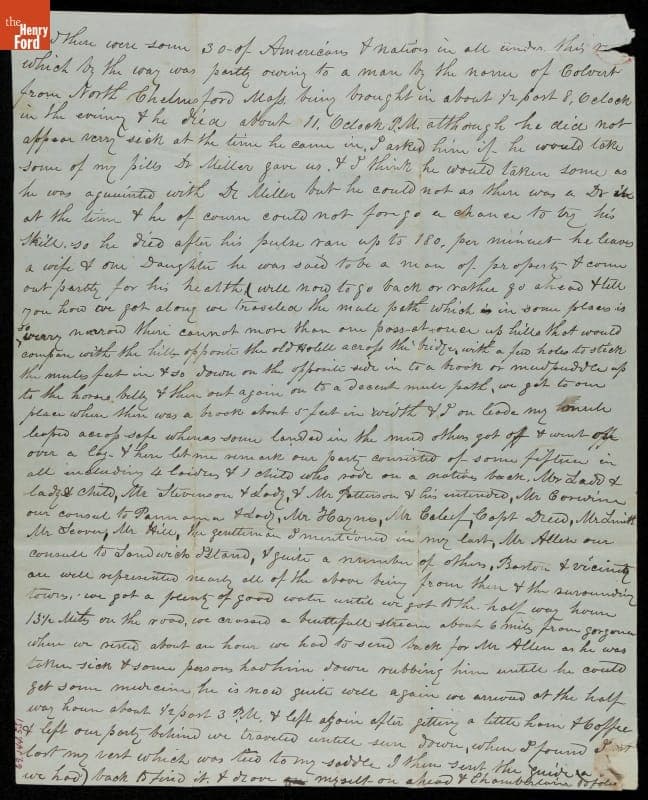 the
Henry
Ford
there were some 30 of Americans & natives in all under this
which by the way was partly owing to a man by the name of Colvert
from North Chelmsford Mass. being brought in about 1/2 past 8, Oclock
in the evening & he died about 11, Oclock P.M. although he did not
appear verry sick at the time he came in, I asked him if he would take
some of my pills Dr Miller gave us. & I think he would taken some as
he was aquainted with Dr Miller but he could not as there was a Dr in
at the time & he of course could not forgo a chance to try his
skill. so he died after his pulse ran up to 180. per minuet he leaves
a wife & one Daughter he was said to be a man of property & come
out partly for his health, I will now to go back or rather go ahead & tell
you how we got along we traveled the mule path which is in some places is
so verry narrow there cannot more than one pass at once up hills that would
compare with the hill opposite the old Hotell across the bridge, with a few holes to stick
the mules feet in & so down on the opposite side in to a brook or mudpuddle up
to the horses belly & then out again on to a decent mule path, we got to one
place where there was a brook about 5 feet in width & I on leade my mule
leaped across safe whereas some landed in the mud others got off & went
over a log & here let me remark our party consisted of some fifteen in
all including 4 Laidies & 1 child who rode on a natives back. Mr Ladd &
lady & child, Mr Stevenson & Lady, & Mr Patterson & his intended, Mr Corwine
our consul to Pannama & Lady, Mr Haynes, Mr Caleef, Capt Deed, Mr Smith
Mr Seaver, Mr Hill, the gentleman I mentioned in my last, Mr Allen our
consule to Sandwich Island, & quite a number of others, Boston & vicinity
are well represented nearly all of the above being from there & the surounding
towns, we got a plenty of good water untill we got to the half way house
13 1/2 Miles on the road, we crossed a beuttifull stream about 6 miles from gorgona
where we rested about an hour we had to send back for Mr Allen as he was
taken sick & some persons had him down rubbing him untill he could
get some medicine he is now quite well again we arrived at the half
way house about 1/2 past 3 P.M. & left again after getting a little ham & Coffee
& left our party behind we traveled untill sun down, when I found I
lost my vest which was tied to my saddle I then sent the guide
we had back to find it. & drove myself on ahead & Chamberline